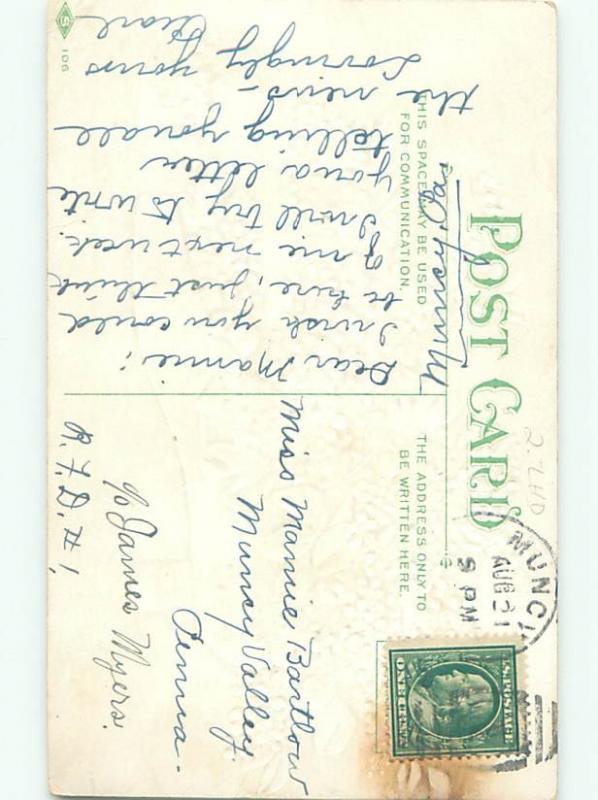 POST CARD
THIS SPACE MAY BE USED
FOR COMMUNICATION.
THE ADDRESS ONLY TO
BE WRITTEN HERE.
Muncy, Pa.
Dear Mamie;
I wish you could
be here, just think
of me next week.
I will try to write
you a letter
telling you all
the news -
Lovingly yours
Miss Mamie Bartlow
Muncy Valley
Penna.
c/o James Myers.
R.F.D. #1,
MUNCY
AUG 21
9 PM
U.S. POSTAGE
ONE CENT
2.2HD
S
106